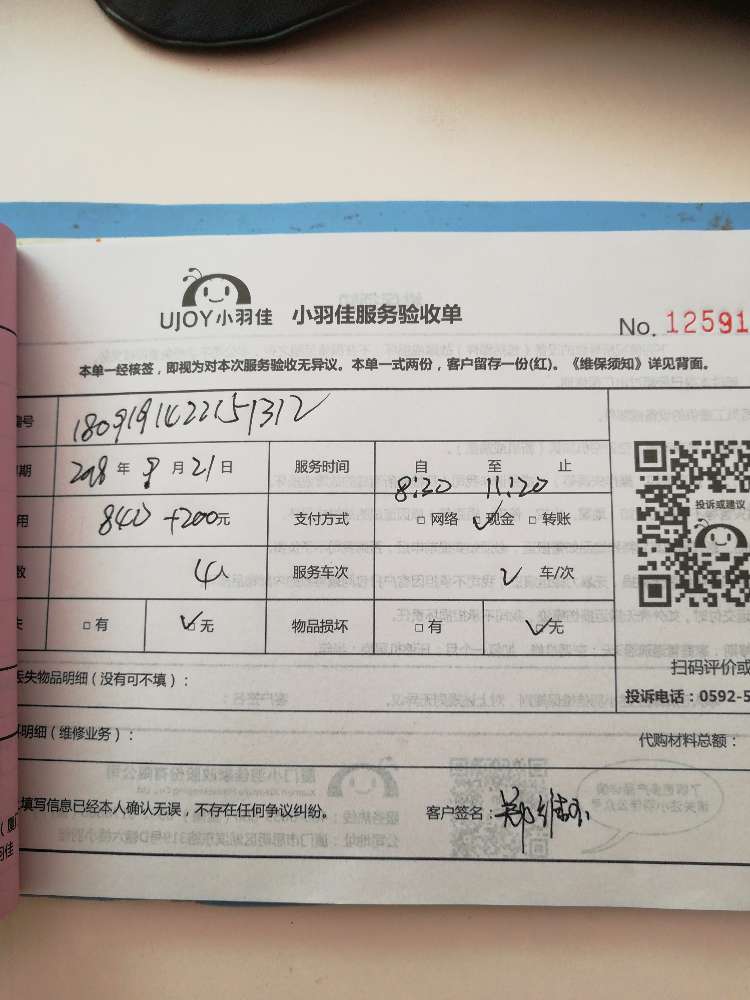 UJOY小羽佳 小羽佳服务验收单
No. 12591
本单一经核签，即视为对本次服务验收无异议。本单一式两份，客户留存一份(红)。《维保须知》详见背面。
编号 1809191422151312
期 2018 年 9 月 21 日 服务时间 自 至 止
8:20 11:20
用 840 +200元 支付方式 □网络 ✓现金 □转账
数 4人 服务车次 2 车/次
失 □有 ✓□无 物品损坏 □有 ✓□无
投诉或建议
扫码评价或
投诉电话：0592-5
丢失物品明细（没有可不填）：
明细（维修业务）： 代购材料总额：
填写信息已经本人确认无误，不存在任何争议纠纷。 客户签名：郑维